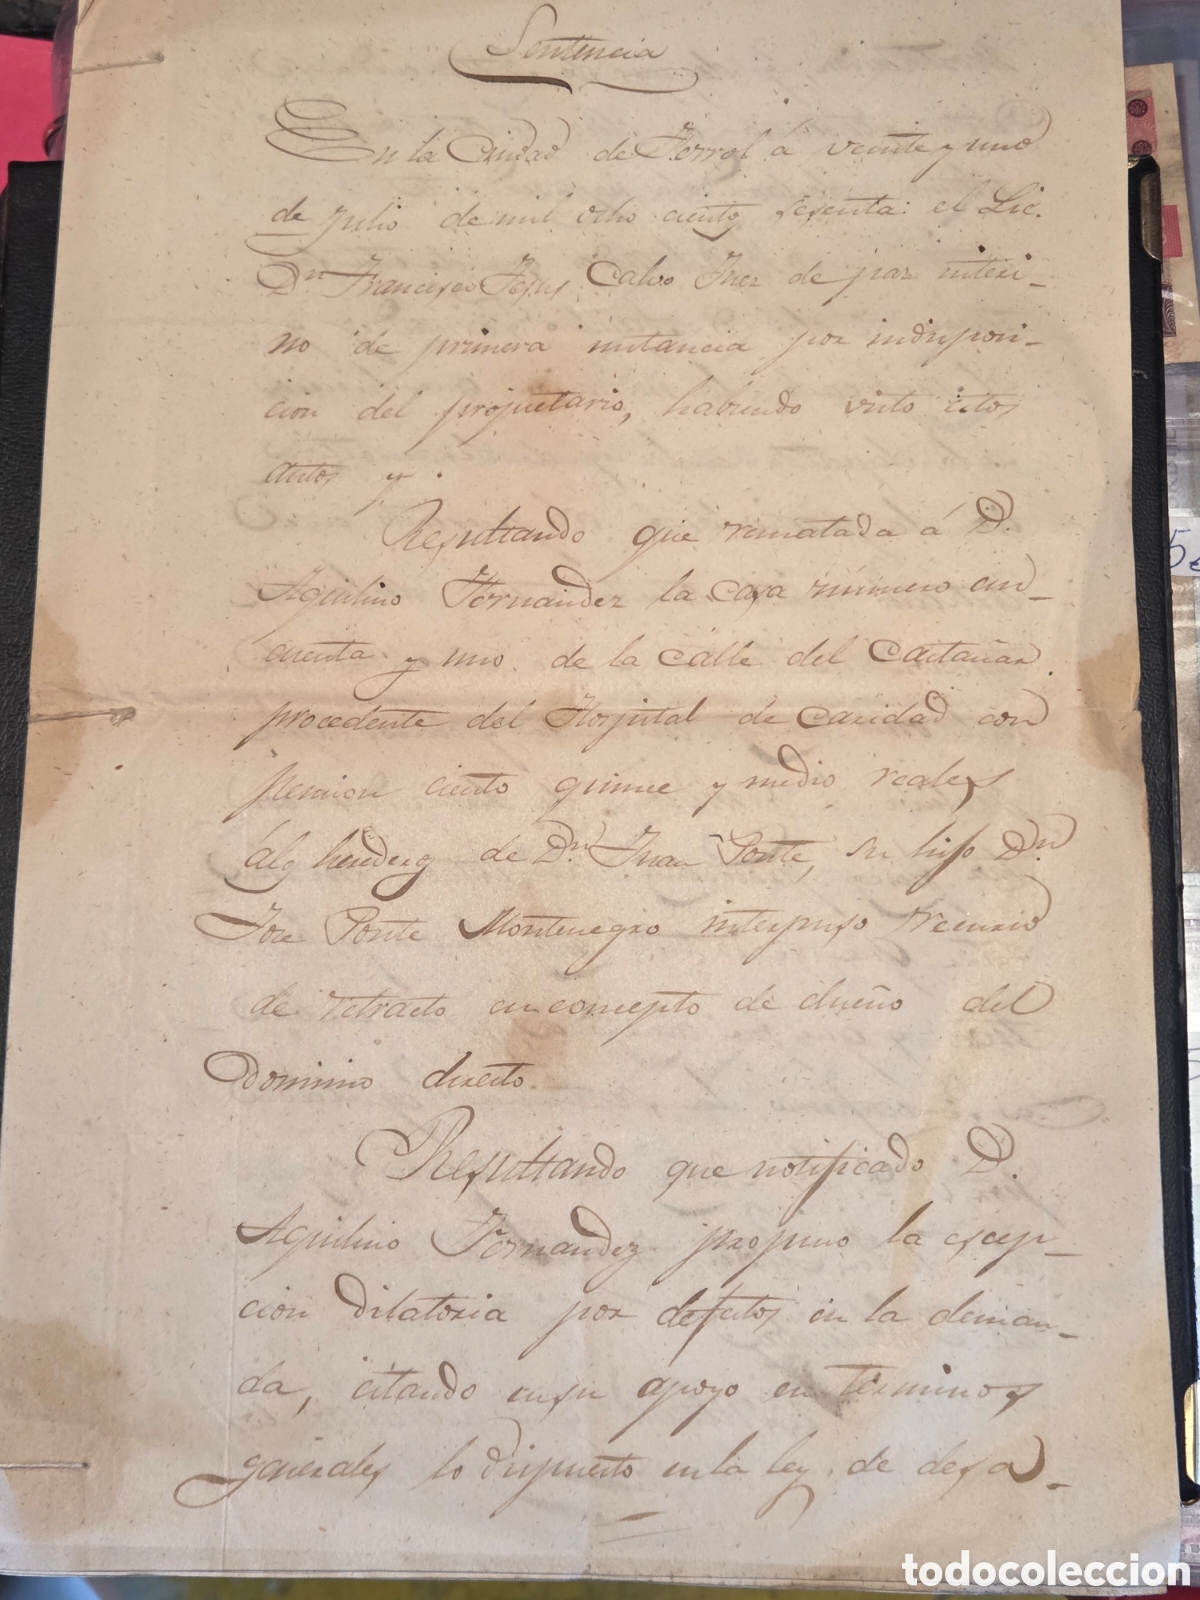 Sentencia
En la Ciudad de Ferrol á veinte y uno
de Julio de mil ocho ciento sesenta: el Lic.
Dn Francisco Jesus Calvo Juez de paz interi-
no de primera instancia por indisposi-
cion del propietario, habiendo visto estos
autos y.
Resultando que rematada á D.
Aquilino Fernandez la casa número cin-
cuenta y uno de la calle del Castañar
procedente del Hospital de Caridad con
pension ciento quince y medio reales
de Dn Juan Ponte, su hijo Dn
Jose Ponte Montenegro interpuso recurso
de retracto en concepto de dueño del
Dominio directo.
Resultando que notificado D.
Aquilino Fernandez propuso la escep-
cion dilatoria por defectos en la deman-
da, citando en su apoyo en términos
generales lo dispuesto en la ley de desa-
5
todocoleccion